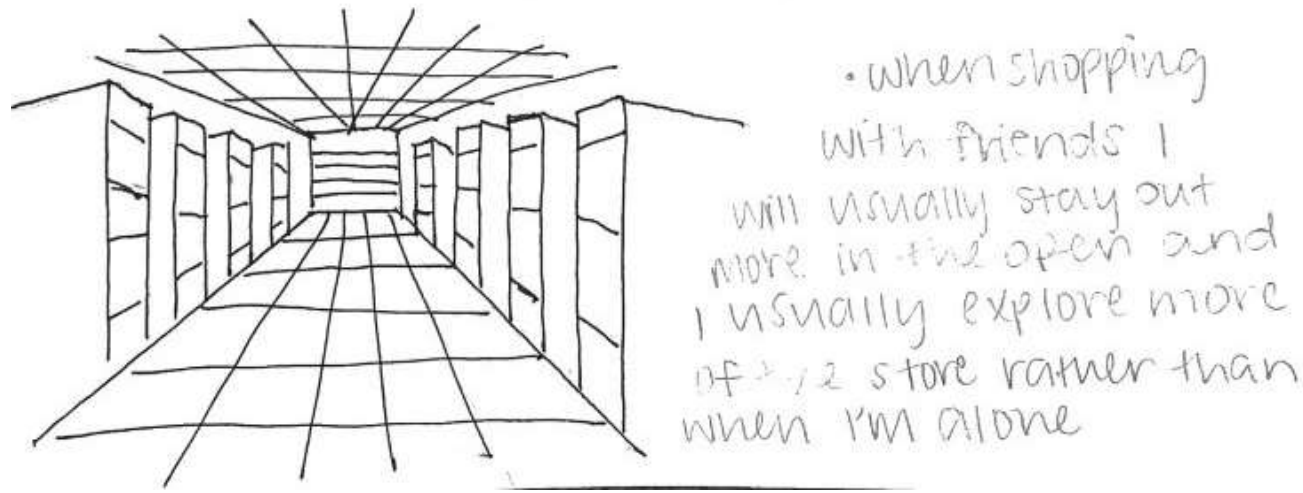 • when shopping
with friends I
will usually stay out
more in the open and
I usually explore more
of the store rather than
when I'm alone